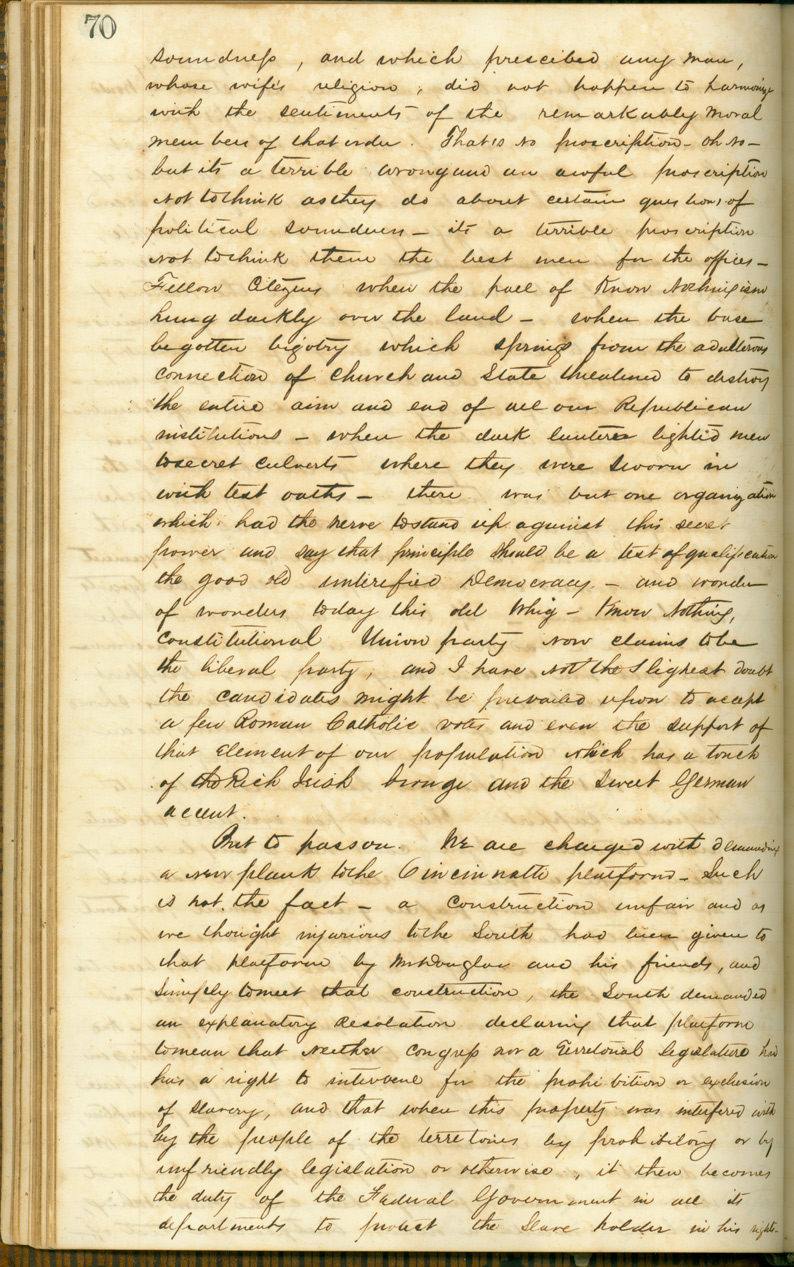 70
soundness, and which prescibed any man,
whose wife's religion, did not happen to harmonize
with the sentiments of the remarkably moral
members of that order. That is no proscription – oh no –
but its a terrible wrong and an awful proscription
not to think as they do about certain questions of
political soundness – its a terrible proscription
not to think them the best men for the offices –
Fellow Citizens when the pall of Know Nothingism
hung darkly over the land – when the base
begotten bigotry which springs from the adulterous
connection of Church and State threatened to destroy
the entire aim and end of all our Republican
institutions – when the dark lanterns lighted men
to secret culverts where they were sworn in
with test oaths – there was but one organization
which had the nerve to stand up against this secret
power and say that principle should be a test of qualification
the good old unterified Democracy – and wonder
of wonders today this old Whig – Know Nothing,
Constitutional Union party now claims to be
the liberal party, and I have not the slighest doubt
the candidates might be prevailed upon to accept
a few Roman Catholic votes and even the support of
that element of our population which has a touch
of the Rich Irish brouge and the Sweet German
accent.
But to pass on. We are charged with demanding
a new plank to the Cincinnatti platform – Such
is not the fact – a construction unfair and as
we thought injurious to the South had been given to
that platform by Mr Douglas and his friends, and
Simply to meet that construction, the South demanded
an explanatory Resolution declaring that platform
to mean that neither Congress nor a Territorial legislature had
has a right to intervene for the prohibition or exclusion
of slavery, and that when this property was interfered with
by the people of the territories by prohibiting or by
unfriendly legislation or otherwise, it then becomes
the duty of the Federal Government in all its
departments to protect the Slave holder in his rights –